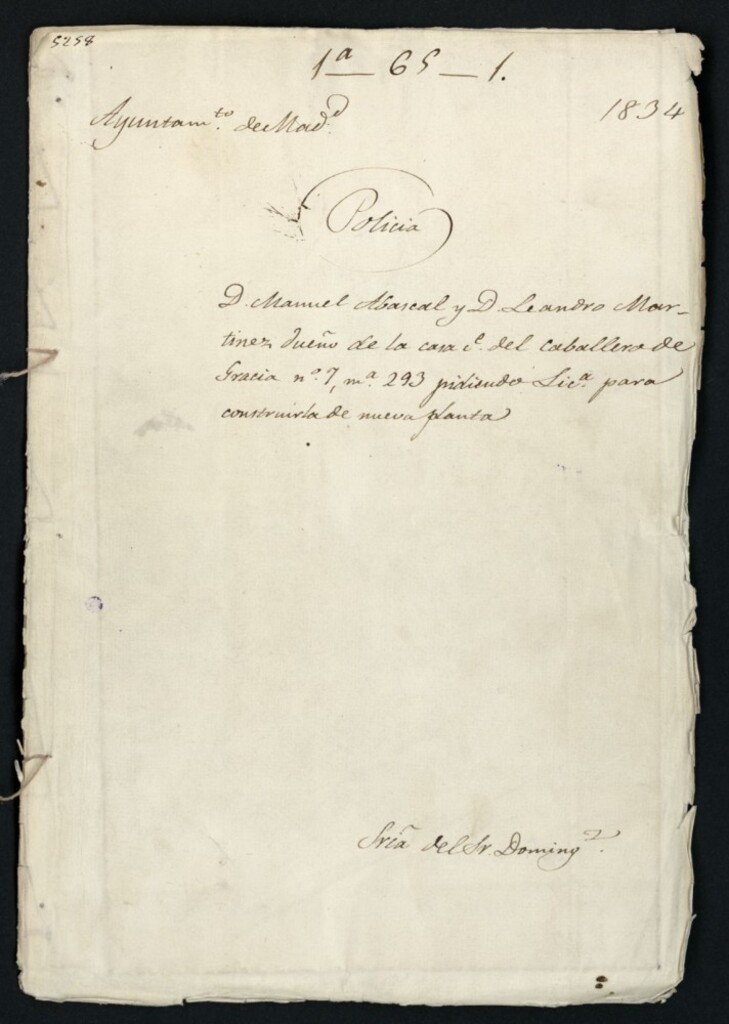 5258
1ª — 65 — 1.
Ayuntam.to de Mad.d
1834
Policia
D. Manuel Abascal y D. Leandro Mar-
tinez dueño de la casa c.e del caballero de
Gracia n.º 7, m.a 293 pidiendo Lic.a para
construirla de nueva planta
Sria del Sr. Doming.z